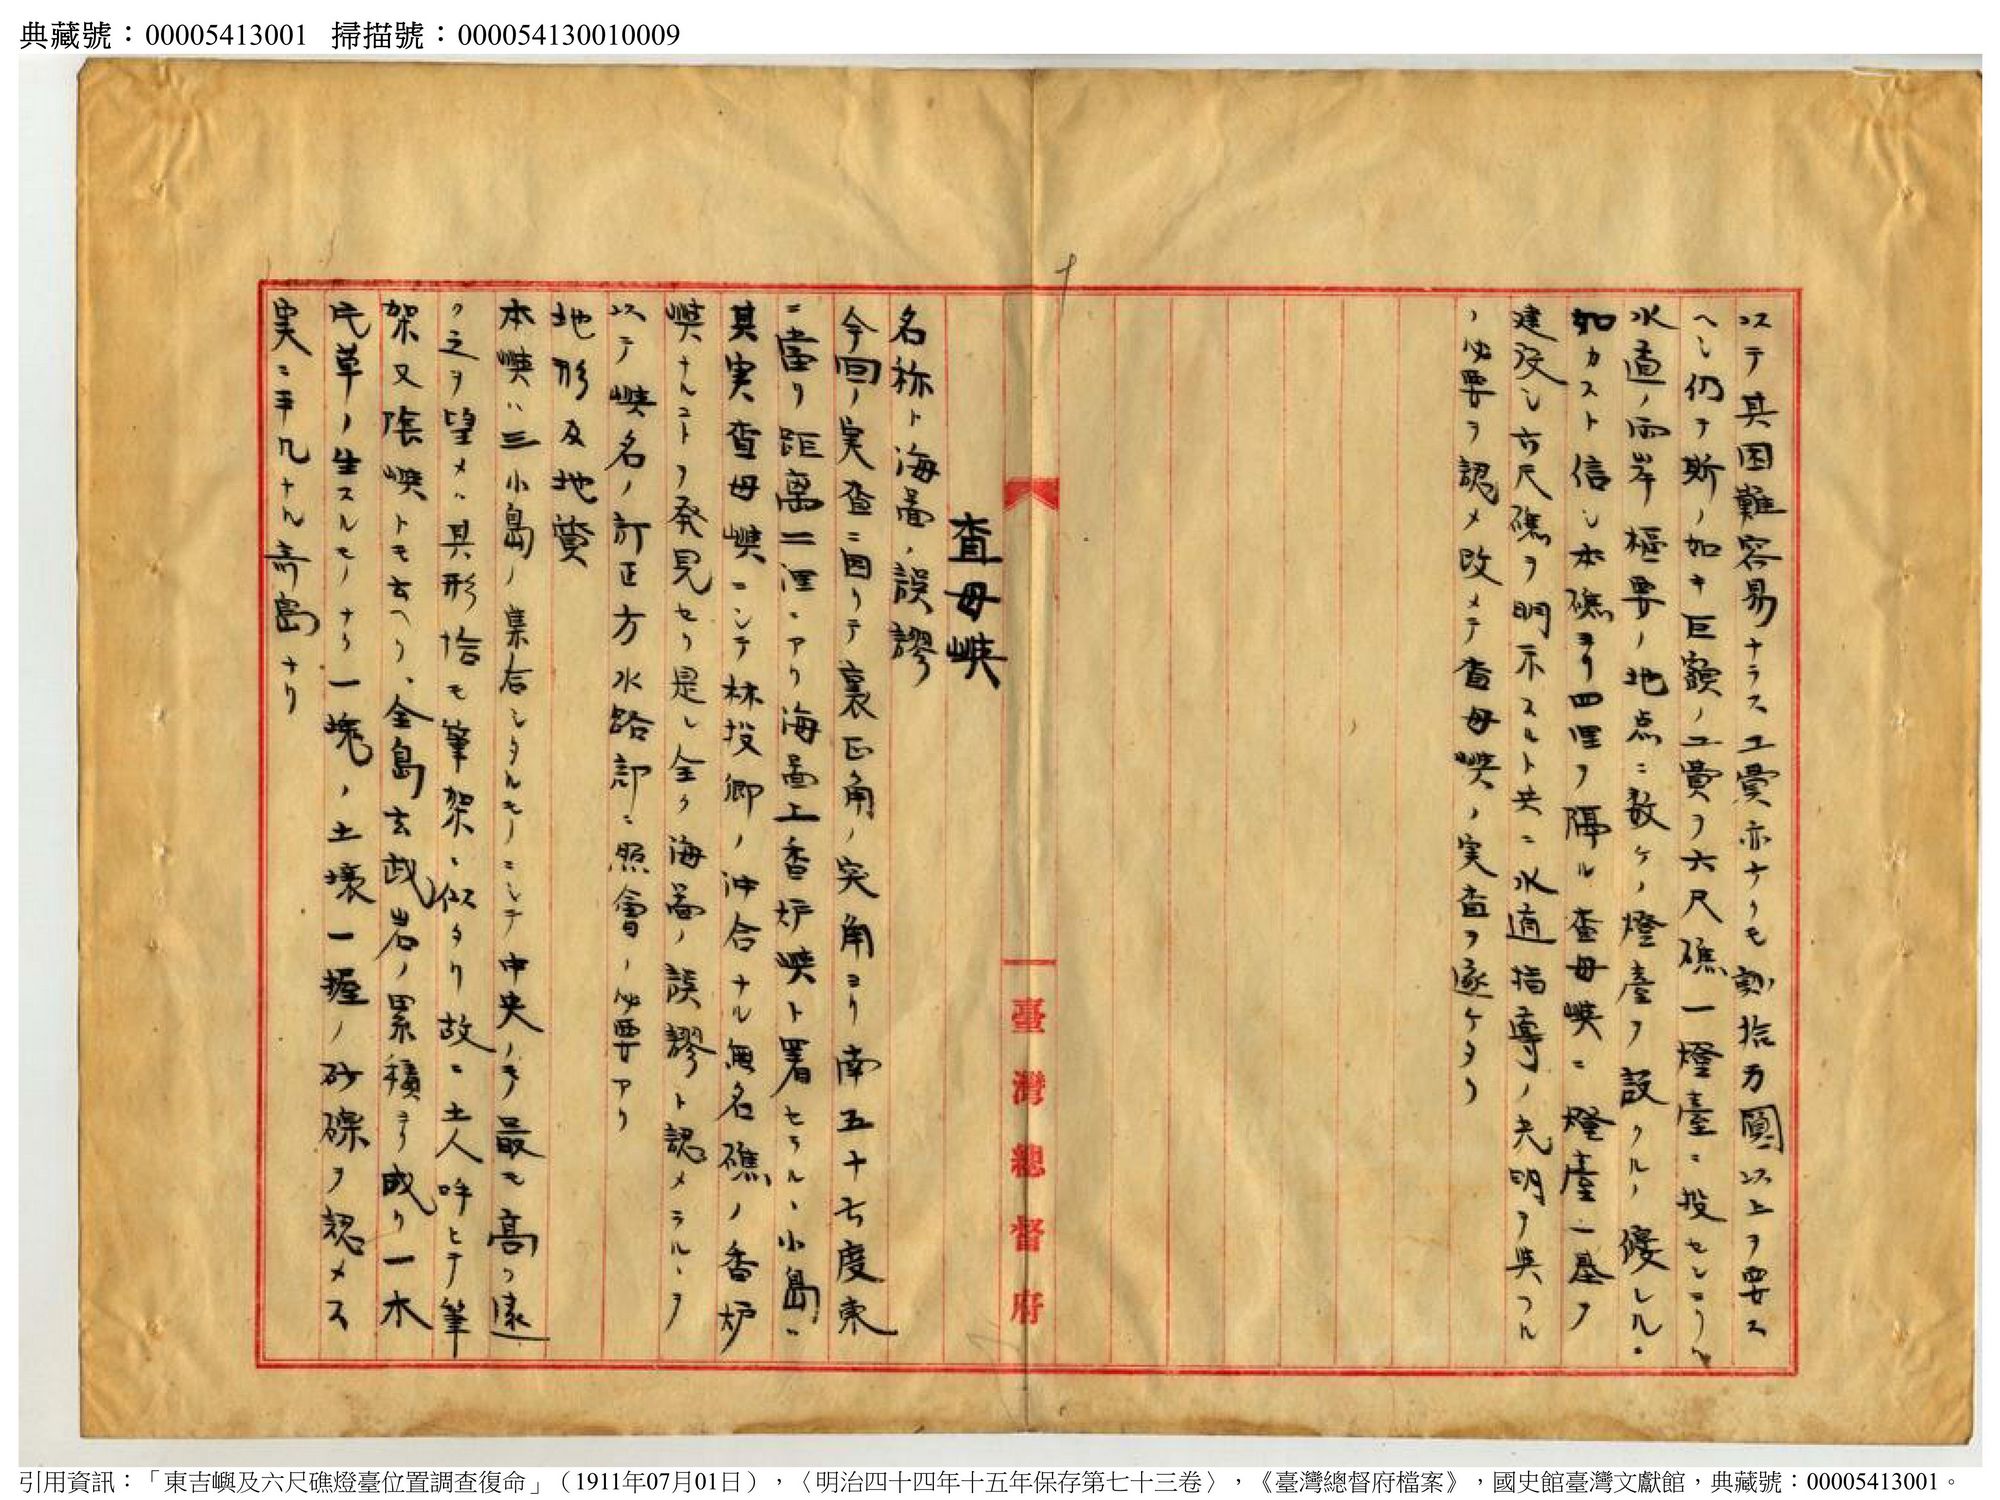 典藏號：00005413001 掃描號：000054130010009
以テ其困難容易ナラス工費亦ナクモ数拾万圓以上ヲ要ス
ヘシ仍テ斯ノ如キ巨額ノ工費ヲ六尺礁一燈臺ニ投セシヨリハ
水道ノ両岸樞要ノ地点ニ数ケノ燈臺ヲ設クルノ優レルニ
如カスト信シ本礁ヨリ四浬ヲ隔ル査母嶼ニ燈臺一基ヲ
建設シ六尺礁ヲ明示スルト共ニ水道指導ノ光明ヲ與フル
ノ必要ヲ認メ改メテ査母嶼ノ実査ヲ遂ケタリ
臺灣總督府
査母嶼
名称ト海啚ノ誤謬
今回ノ実査ニ因リテ裏正角ノ突角ヨリ南五十七度東
ニ當リ距離二浬ニアリ海啚上香炉嶼ト署セラルヽ小島ハ
其実査母嶼ニシテ林投郷ノ沖合ナル無名礁ノ香炉
嶼ナルコトヲ発見セリ是レ全ク海啚ノ誤謬ト認メラルヽヲ
以テ嶼名ノ訂正方水路部ニ照會ノ必要アリ
地形及地質
本嶼ハ三小島ノ集合シタルモノニシテ中央ノモノ最モ高ク遠
ク之ヲ望メハ其形恰モ筆架ニ似タリ故ニ土人呼ヒテ筆
架又陰嶼トモ云ヘリ、全島玄武岩ノ累積ヨリ成リ一木
一草ノ生スルモノナク一塊ノ土壌一握ノ砂礫ヲ認メス
実ニ平凡ナル奇島ナリ
引用資訊：「東吉嶼及六尺礁燈臺位置調查復命」（1911年07月01日），〈明治四十四年十五年保存第七十三卷〉，《臺灣總督府檔案》，國史館臺灣文獻館，典藏號：00005413001。